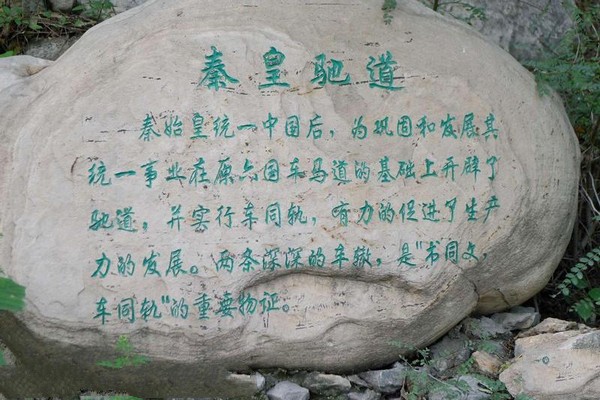 秦皇驰道
秦始皇统一中国后，为巩固和发展其
统一事业在原六国车马道的基础上开辟了
驰道，并实行车同轨，有力的促进了生产
力的发展。两条深深的车辙，是“书同文，
车同轨”的重要物证。